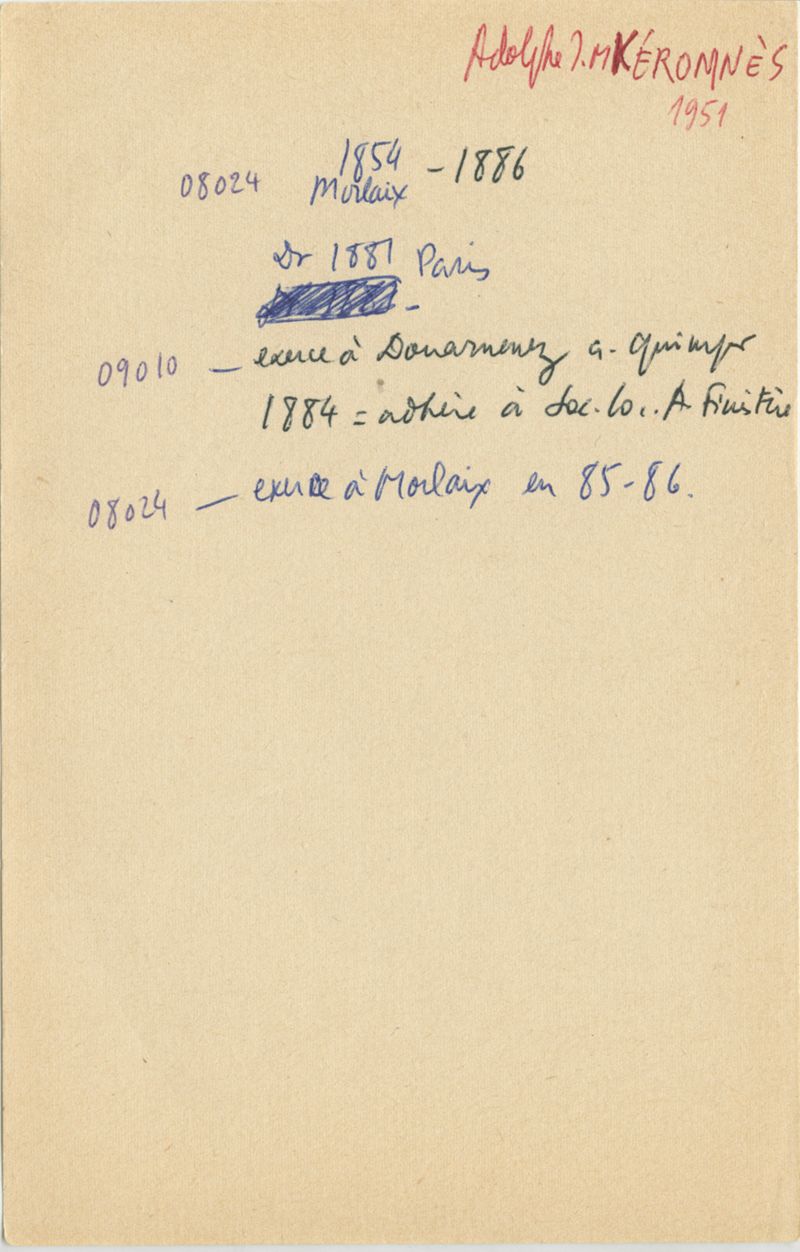 Adolphe J.M KÉROMNÈS
1951
08024 1854 - 1886
Morlaix
Dr 1881 Paris
09010 — exerce à Douarnenez a. Quimper
1884 = adhère à Soc. lo.. A. Finistère
08024 — exerce à Morlaix en 85-86.